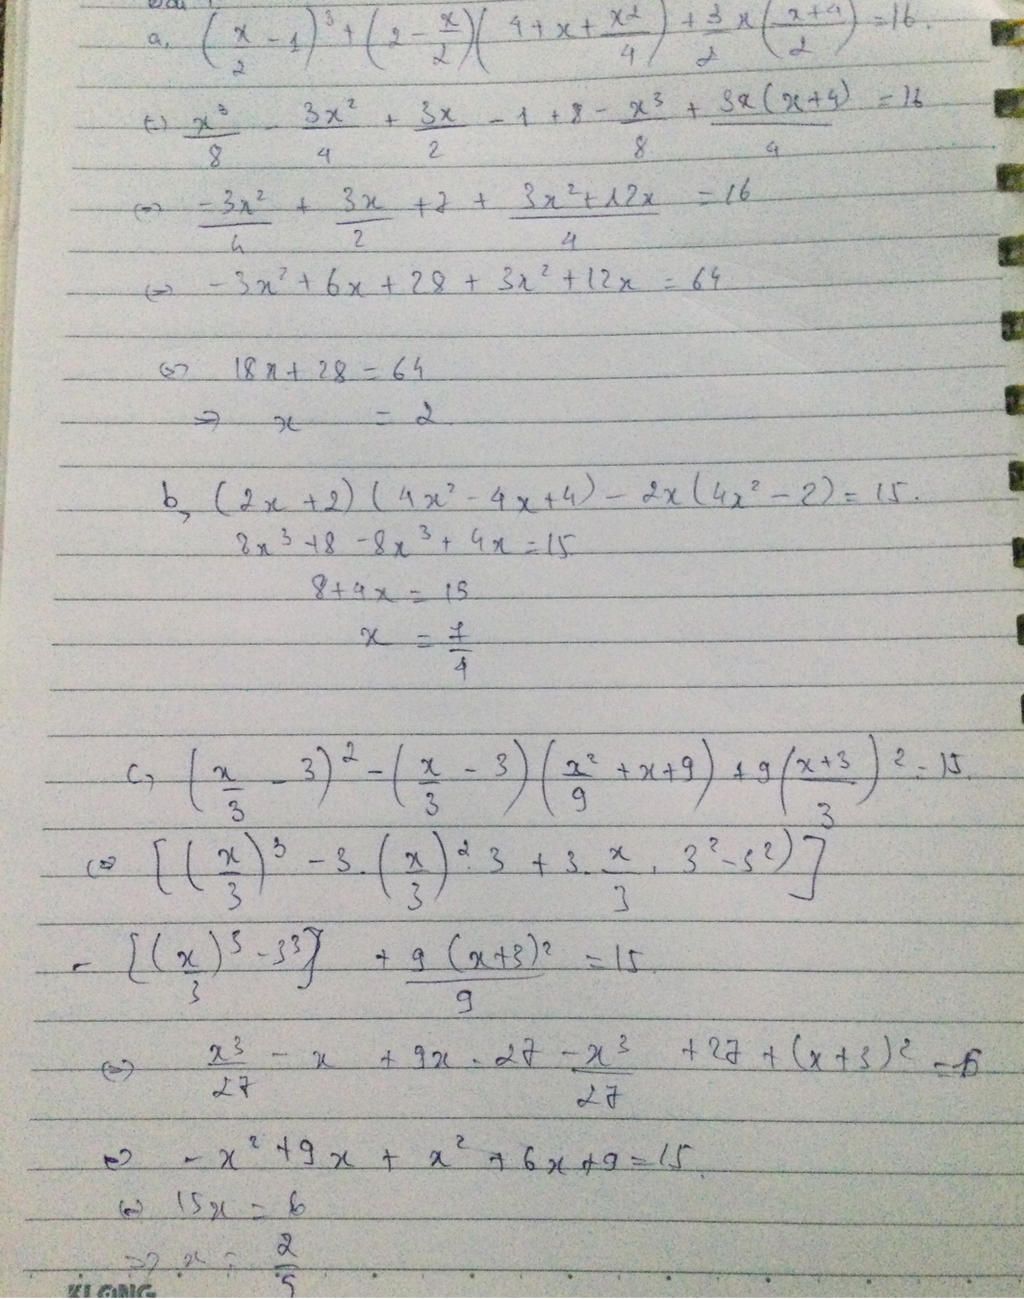 a, (x/2 - 1)³ + (2 - x/2)(4 + x + x²/4) + 3/2 x (x+4/2) = 16.
(=) x³/8 - 3x²/4 + 3x/2 - 1 + 8 - x³/8 + 3x(x+4)/4 = 16
(=) -3x²/4 + 3x/2 + 7 + 3x²+12x/4 = 16
(=) -3x² + 6x + 28 + 3x² + 12x = 64
(=) 18x + 28 = 64
=> x = 2
b, (2x + 2)(4x² - 4x + 4) - 2x(4x² - 2) = 15.
8x³ + 8 - 8x³ + 4x = 15
8 + 4x = 15
x = 7/4
c, (x/3 - 3)² - (x/3 - 3)(x²/9 + x + 9) + 9(x+3/3)² = 15.
(=) [(x/3)³ - 3.(x/3)².3 + 3.x/3.3² - 3²)]
- [(x/3)³ - 3³] + 9(x+3)²/9 = 15
(=) x³/27 - x + 9x - 27 - x³/27 + 27 + (x+3)² = 15
(=) -x² + 9x + x² + 6x + 9 = 15.
(=) 15x = 6
=> x = 2/5
KLONG